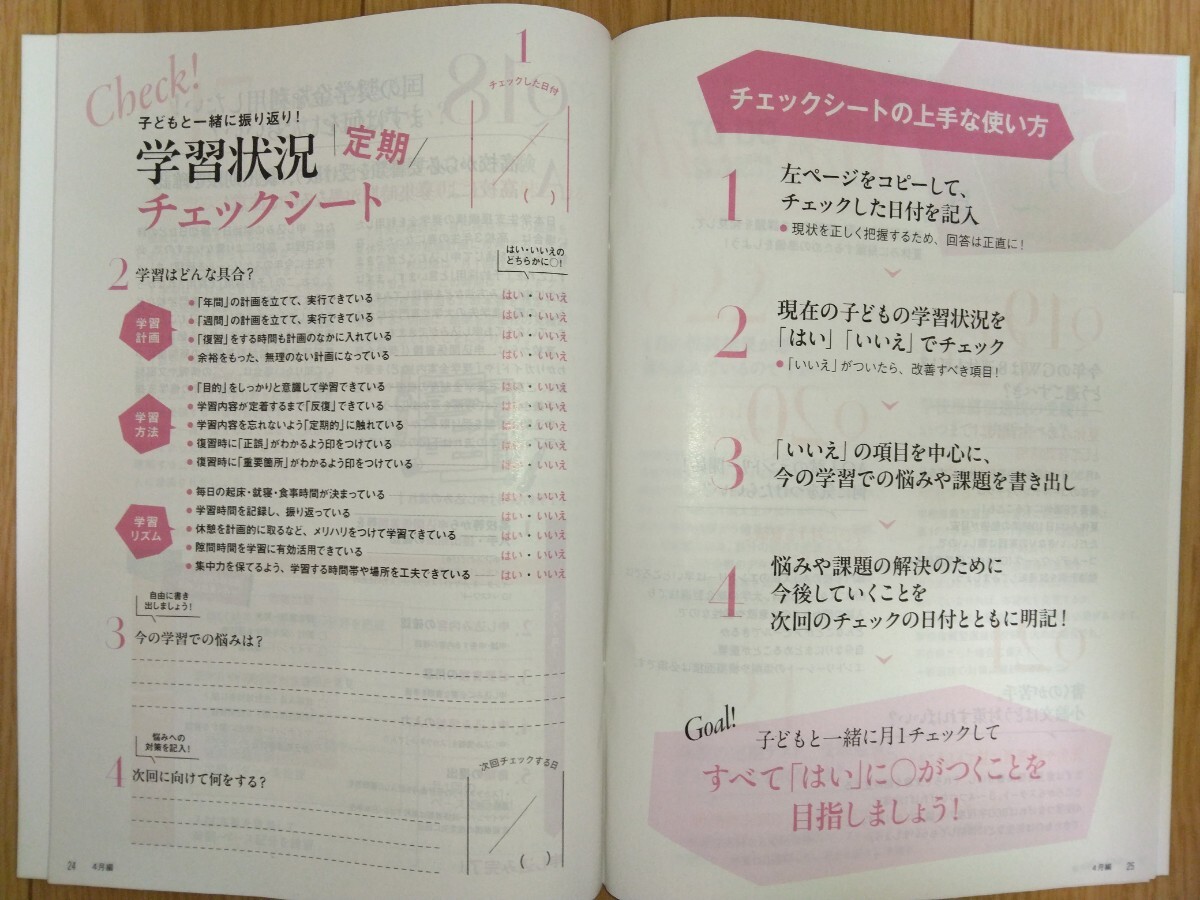 Check!
子どもと一緒に振り返り！
学習状況
定期
チェックシート
1
チェックした日付
／
（　）
2 学習はどんな具合？
はい・いいえの
どちらかに○！
学習
計画
●「年間」の計画を立てて、実行できている はい・いいえ
●「週間」の計画を立てて、実行できている はい・いいえ
●「復習」をする時間も計画のなかに入れている はい・いいえ
● 余裕をもった、無理のない計画になっている はい・いいえ
学習
方法
●「目的」をしっかりと意識して学習できている はい・いいえ
● 学習内容が定着するまで「反復」できている はい・いいえ
● 学習内容を忘れないよう「定期的」に触れている はい・いいえ
● 復習時に「正誤」がわかるよう印をつけている はい・いいえ
● 復習時に「重要箇所」がわかるよう印をつけている はい・いいえ
学習
リズム
● 毎日の起床・就寝・食事時間が決まっている はい・いいえ
● 学習時間を記録し、振り返っている はい・いいえ
● 休憩を計画的に取るなど、メリハリをつけて学習できている はい・いいえ
● 隙間時間を学習に有効活用できている はい・いいえ
● 集中力を保てるよう、学習する時間帯や場所を工夫できている はい・いいえ
自由に書き
出しましょう！
3 今の学習での悩みは？
悩みへの
対策を記入！
4 次回に向けて何をする？
次回チェックする日
／
（　）
24 4月編
チェックシートの上手な使い方
1 左ページをコピーして、
チェックした日付を記入
● 現状を正しく把握するため、回答は正直に！
2 現在の子どもの学習状況を
「はい」「いいえ」でチェック
●「いいえ」がついたら、改善すべき項目！
3 「いいえ」の項目を中心に、
今の学習での悩みや課題を書き出し
4 悩みや課題の解決のために
今後していくことを
次回のチェックの日付とともに明記！
Goal!
子どもと一緒に月1チェックして
すべて「はい」に○がつくことを
目指しましょう！
4月編 25